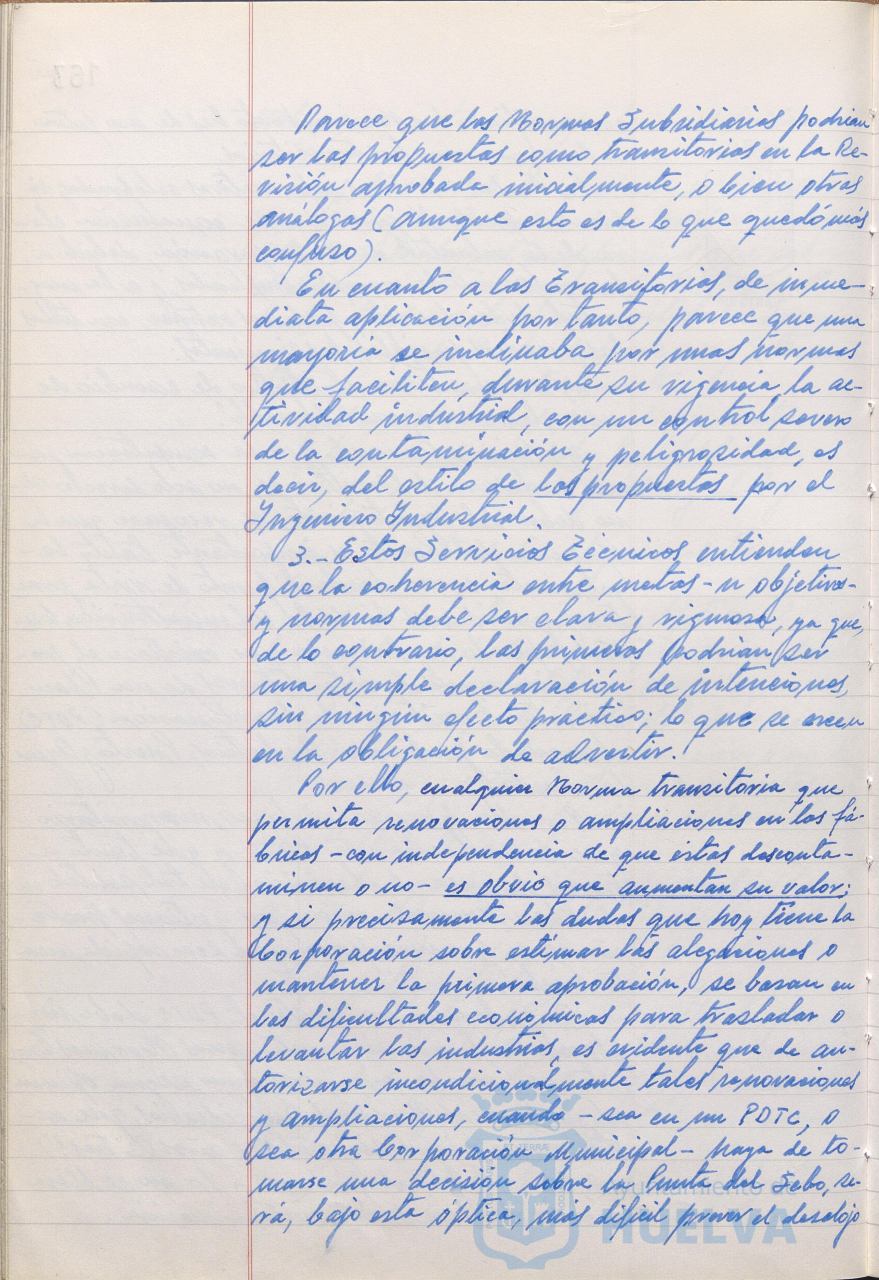 Parece que las Normas Subsidiarias podrian
ser las propuestas como transitorias en la Re-
visión aprobada inicialmente, o bien otras
análogas (aunque esto es de lo que quedó más
confuso).
En cuanto a las Transitorias, de inme-
diata aplicación por tanto, parece que una
mayoria se inclinaba por unas normas
que faciliten, durante su vigencia la ac-
tividad industrial, con un control severo
de la contaminación y peligrosidad, es
decir, del estilo de las propuestas por el
Ingeniero Industrial.
3.- Estos Servicios Técnicos entienden
que la coherencia entre metas - u objetivos-
y normas debe ser clara y rigurosa, ya que,
de lo contrario, las primeras podrian ser
una simple declaración de intenciones,
sin ningún efecto práctico; lo que se creen
en la obligación de advertir.
Por ello, cualquier Norma transitoria que
permita renovaciones o ampliaciones en las fá-
bricas - con independencia de que éstas desconta-
minen o no - es obvio que aumentan su valor;
y si precisamente las dudas que hoy tiene la
Corporación sobre estimar las alegaciones o
mantener la primera aprobación, se basan en
las dificultades económicas para trasladar o
levantar las industrias, es evidente que de au-
torizarse incondicionalmente tales renovaciones
y ampliaciones, cuando - sea en un PDTC, o
sea otra Corporación Municipal - haya de to-
marse una decisión sobre la Punta del Sebo, se-
rá, bajo esta óptica, más dificil prever el desalojo
Ayuntamiento de
HUELVA